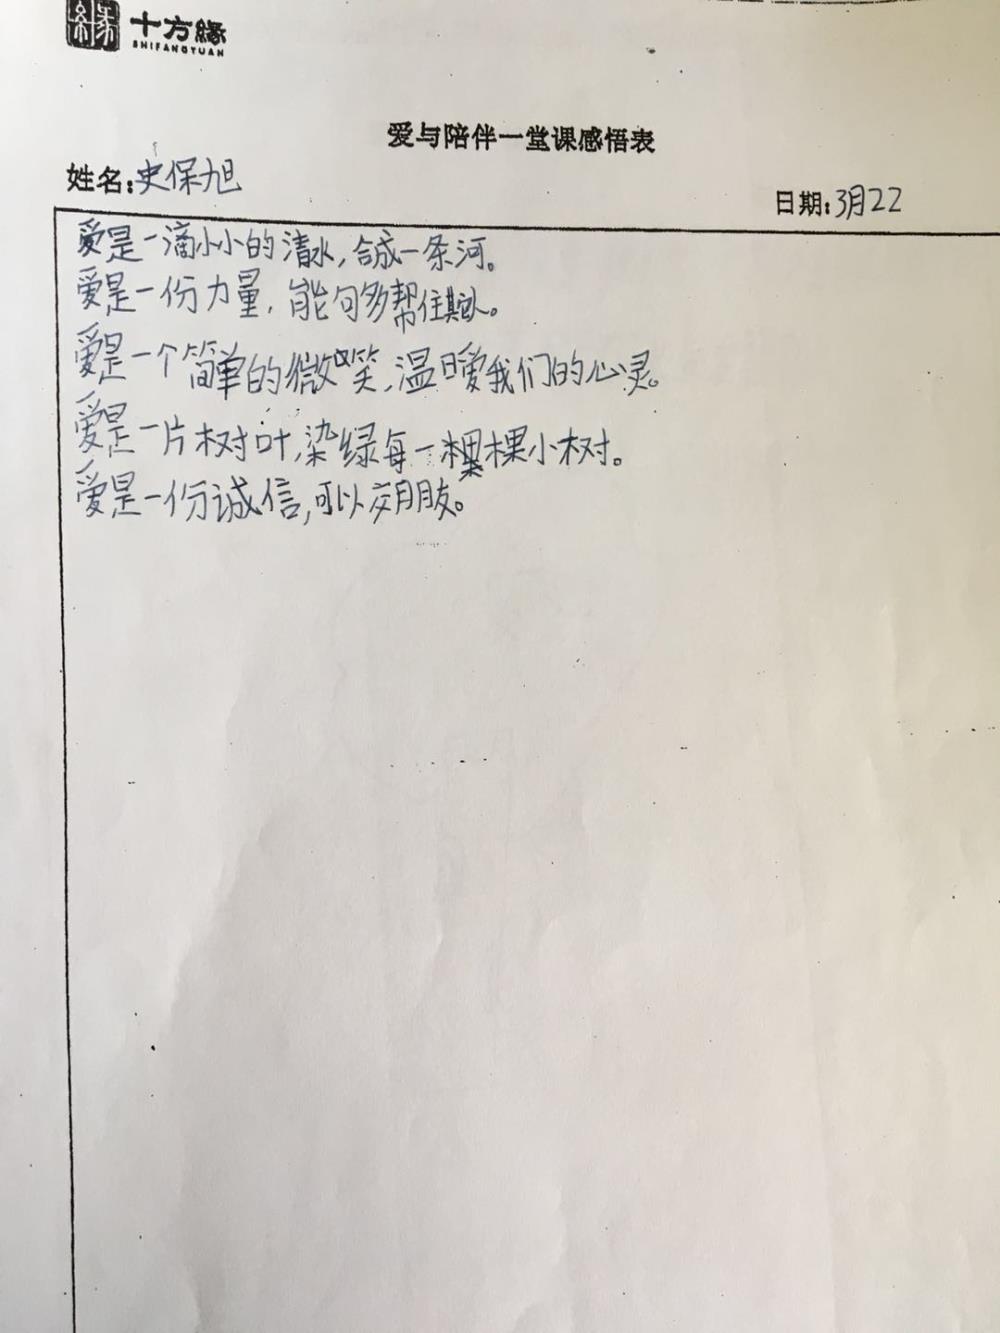 十方緣
SHIFANGYUAN
爱与陪伴一堂课感悟表
姓名:史保旭
日期:3月22
爱是一滴小小的清水,合成一条河。
爱是一份力量,能句多帮住其队。
爱是一个简单的微笑,温暖我们的心灵。
爱是一片树叶,染绿每一棵棵小树。
爱是一份诚信,可以交朋友。